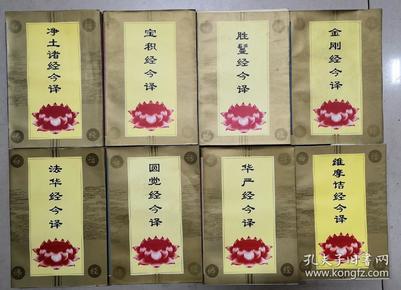 净土诸经今译
宝积经今译
胜鬘经今译
金刚经今译
法华经今译
圆觉经今译
华严经今译
维摩诘经今译
孔夫子旧书网
www.kongfz.com